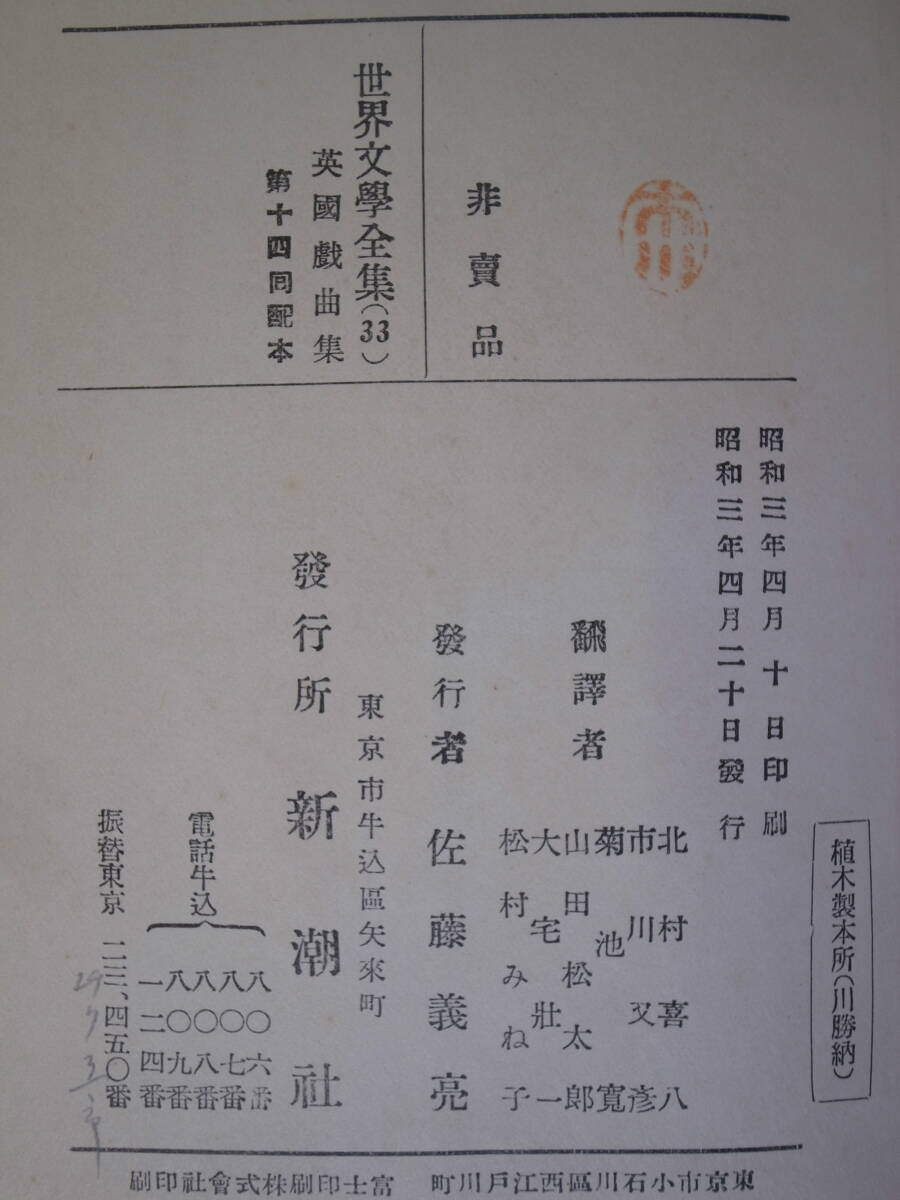 植木製本所(川勝納)
昭和三年四月十日印刷
昭和三年四月二十日發行
非賣品
世界文學全集(33)
英國戲曲集
第十四回配本
翻譯者
北村喜八
市川又彥
菊池寬
山田松太郎
大宅壯一
松村みね子
發行者 佐藤義亮
東京市牛込區矢來町
發行所 新潮社
電話牛込
八〇六番
八〇七番
八〇八番
八〇九番
一二四番
振替東京
、四五〇番
東京市小石川區西江戶川町 富士印刷株式會社印刷